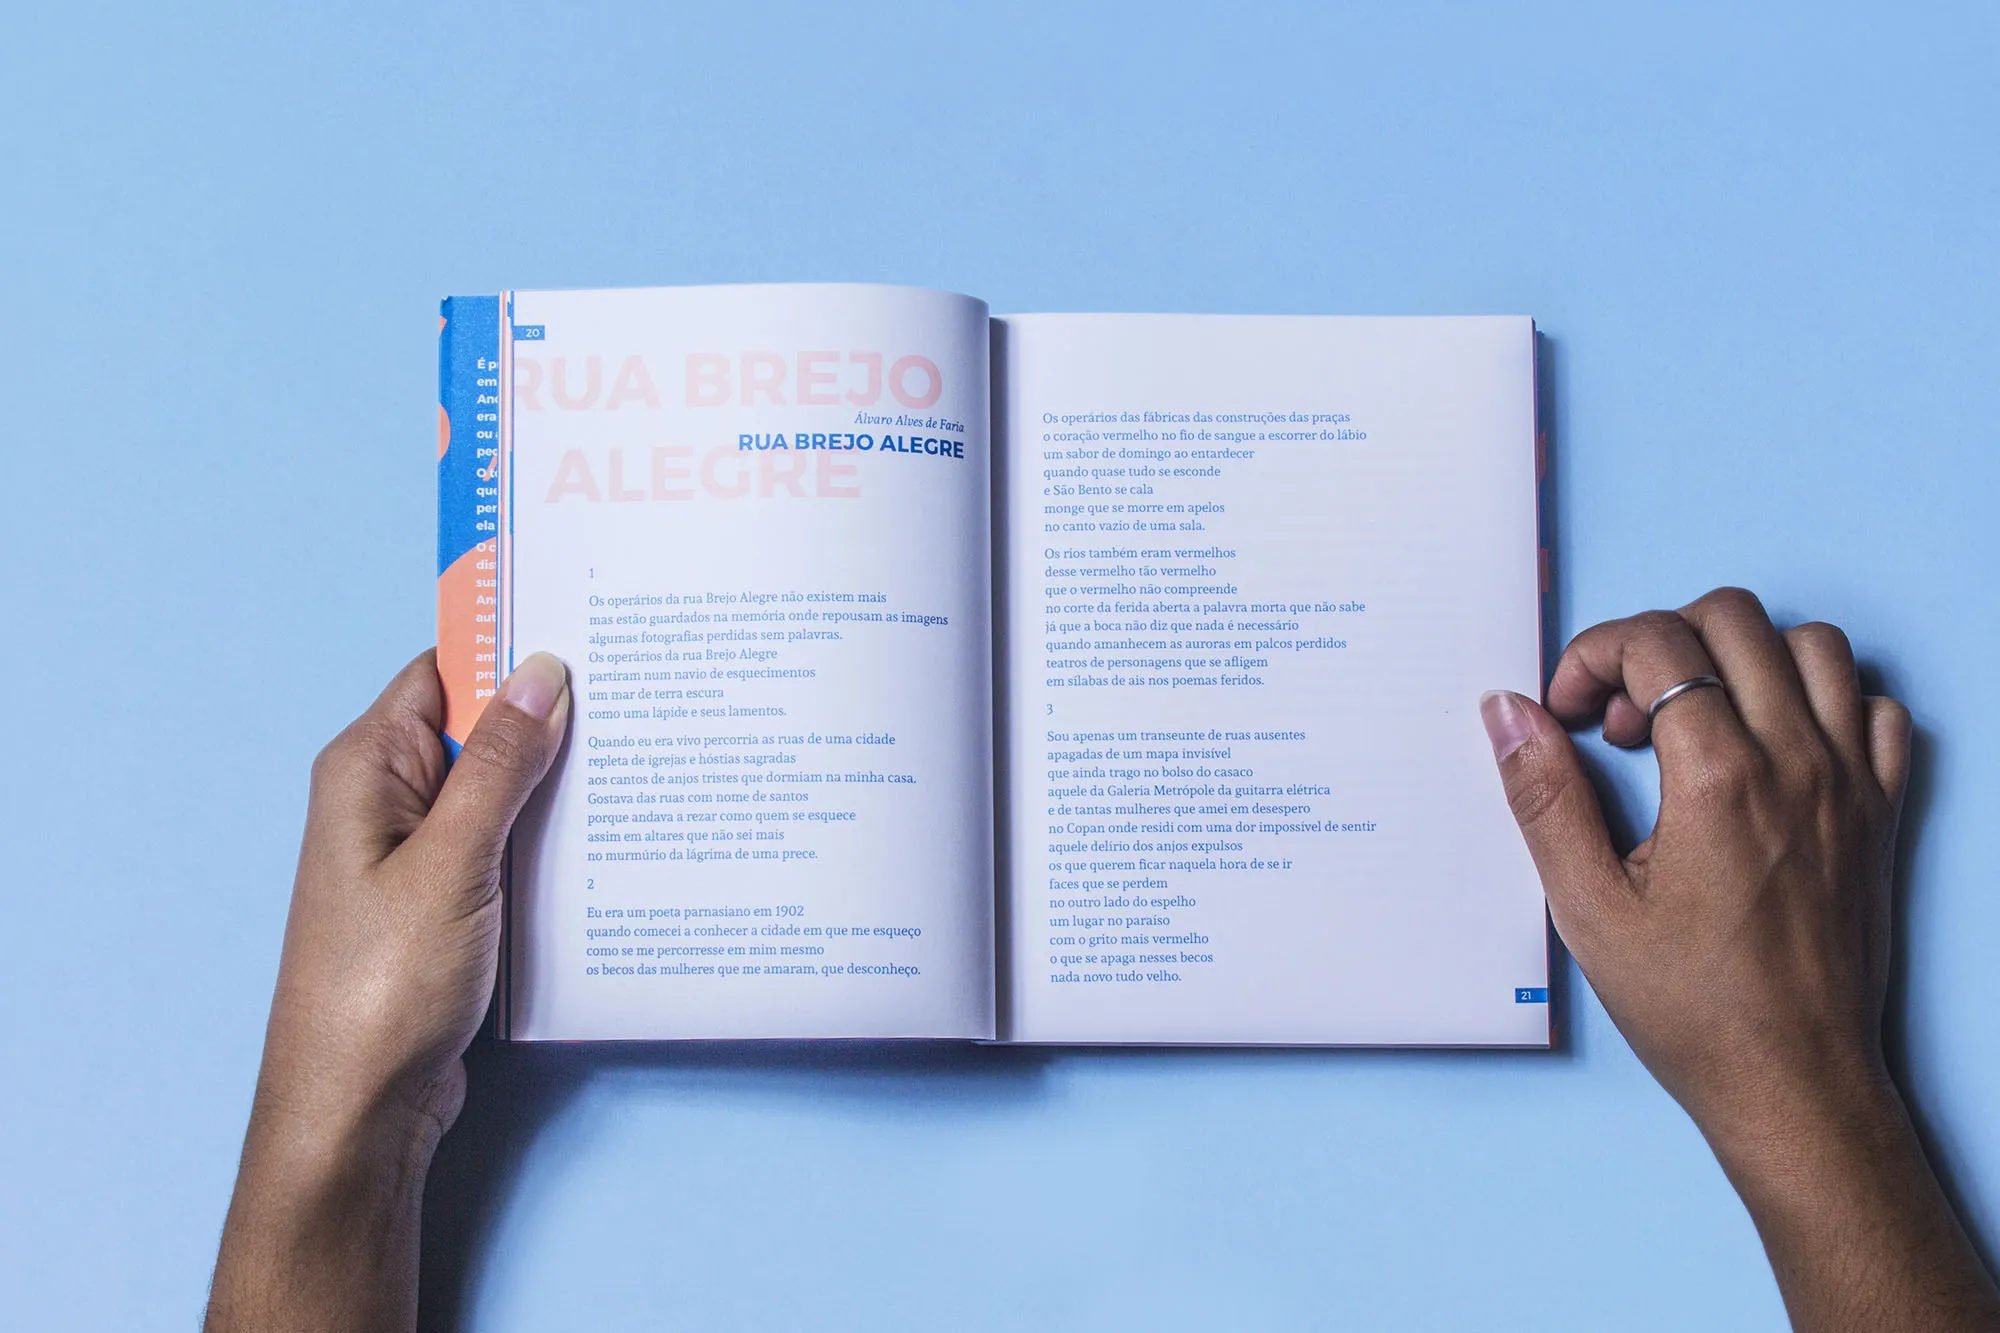 É p
em
And
era
ou a
pec
O to
que
per
ela
O c
dis
sua
An
aut
Por
ant
pro
pa
20
RUA BREJO
ALEGRE
Álvaro Alves de Faria
RUA BREJO ALEGRE
1
Os operários da rua Brejo Alegre não existem mais
mas estão guardados na memória onde repousam as imagens
algumas fotografias perdidas sem palavras.
Os operários da rua Brejo Alegre
partiram num navio de esquecimentos
um mar de terra escura
como uma lápide e seus lamentos.
Quando eu era vivo percorria as ruas de uma cidade
repleta de igrejas e hóstias sagradas
aos cantos de anjos tristes que dormiam na minha casa.
Gostava das ruas com nome de santos
porque andava a rezar como quem se esquece
assim em altares que não sei mais
no murmúrio da lágrima de uma prece.
2
Eu era um poeta parnasiano em 1902
quando comecei a conhecer a cidade em que me esqueço
como se me percorresse em mim mesmo
os becos das mulheres que me amaram, que desconheço.
Os operários das fábricas das construções das praças
o coração vermelho no fio de sangue a escorrer do lábio
um sabor de domingo ao entardecer
quando quase tudo se esconde
e São Bento se cala
monge que se morre em apelos
no canto vazio de uma sala.
Os rios também eram vermelhos
desse vermelho tão vermelho
que o vermelho não compreende
no corte da ferida aberta a palavra morta que não sabe
já que a boca não diz que nada é necessário
quando amanhecem as auroras em palcos perdidos
teatros de personagens que se afligem
em sílabas de ais nos poemas feridos.
3
Sou apenas um transeunte de ruas ausentes
apagadas de um mapa invisível
que ainda trago no bolso do casaco
aquele da Galeria Metrópole da guitarra elétrica
e de tantas mulheres que amei em desespero
no Copan onde residi com uma dor impossível de sentir
aquele delírio dos anjos expulsos
os que querem ficar naquela hora de se ir
faces que se perdem
no outro lado do espelho
um lugar no paraíso
com o grito mais vermelho
o que se apaga nesses becos
nada novo tudo velho.
21